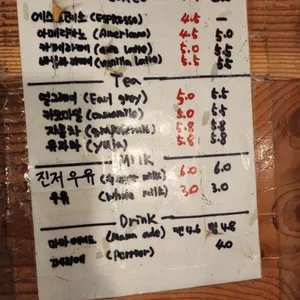 에스프레소 (Espresso) 4.5 —
아메리카노 (Americano) 4.5 5.0
카페라떼 (cafe latte) 5.0 5.5
바닐라라떼 (vanilla latte) 5.5 5.5
Tea
얼그레이 (Earl grey) 5.0 5.5
카모마일 (camomile) 5.0 5.5
자몽차 (grapefruit) 5.8 5.8
유자차 (yuja) 5.8 5.8
Milk
진저우유 milk) 6.0 6.0
우유 (whole milk) 3.0 3.0
Drink
(Mama ade) 4.6 4.8
페리에 (Perrier) 4.0